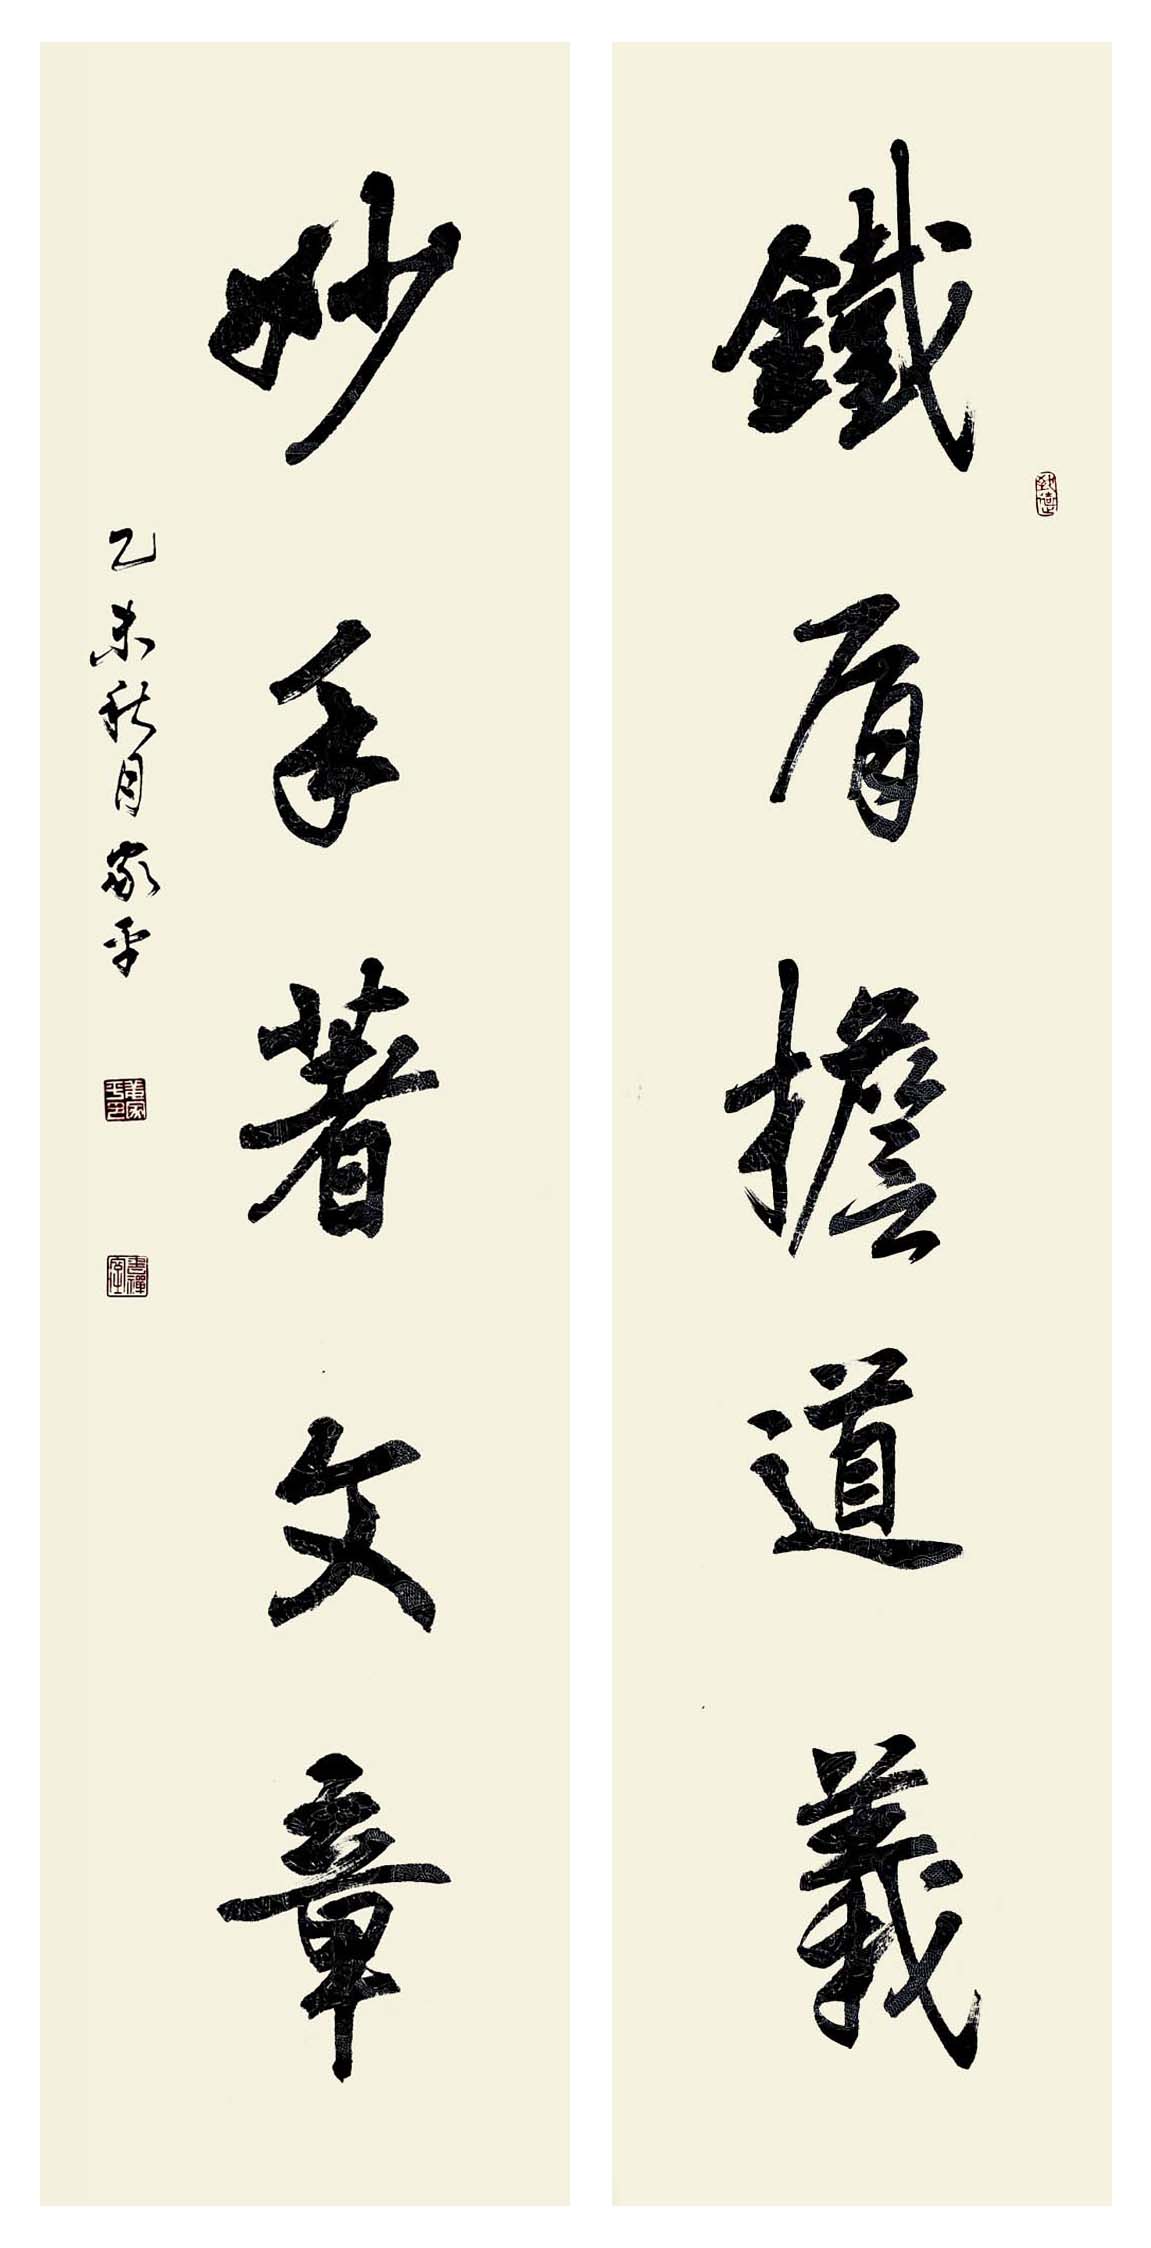 鐵肩擔道義
妙手著文章
乙未秋月家平